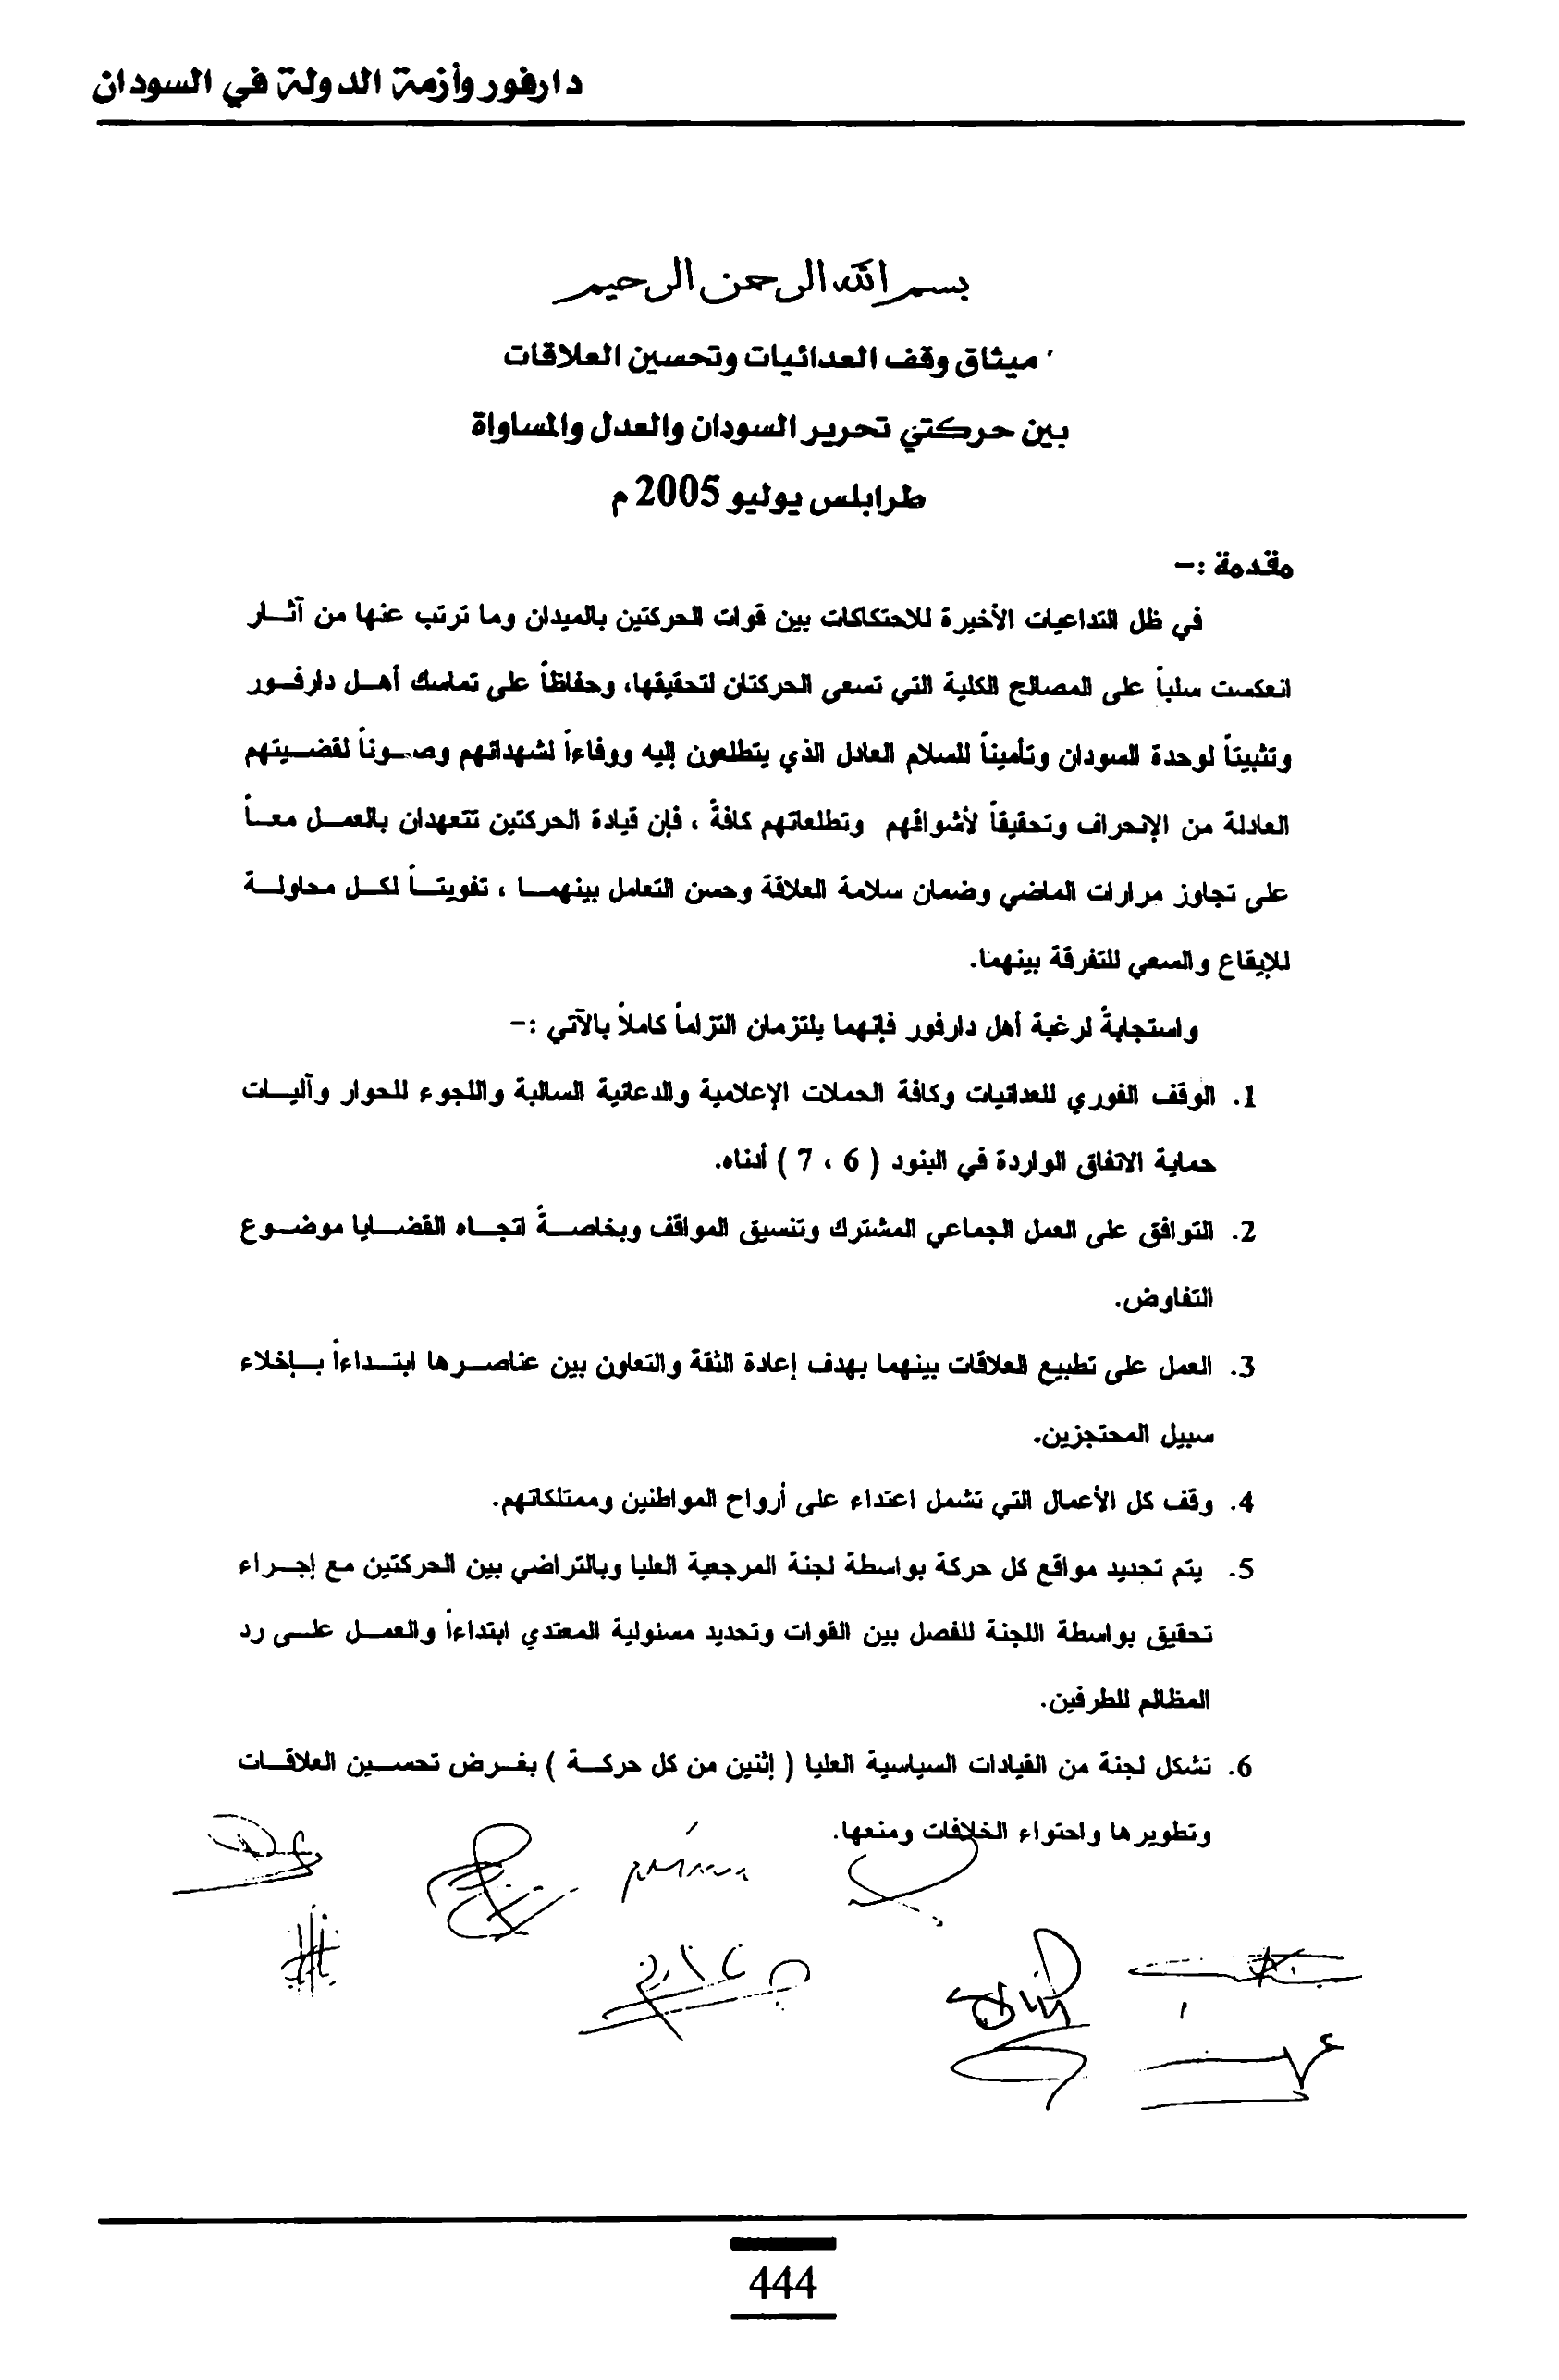 دارفور وأزمة الدولة في السودان
بسم الله الرحمن الرحيم
ميثاق وقف العدائيات وتحسين العلاقات
بين حركتي تحرير السودان والعدل والمساواة
طرابلس يوليو 2005 م
مقدمة :-
في ظل التداعيات الأخيرة للاحتكاكات بين قوات الحركتين بالميدان وما ترتب عنها من آثار
انعكست سلباً على المصالح الكلية التي تسعى الحركتان لتحقيقها، وحفاظاً على تماسك أهل دارفور
وتثبيتاً لوحدة السودان وتأميناً للسلام العادل الذي يتطلعون إليه ووفاءاً لشهدائهم وصوناً لقضيتهم
العادلة من الإنحراف وتحقيقاً لأشواقهم وتطلعاتهم كافةً ، فإن قيادة الحركتين تتعهدان بالعمل معاً
على تجاوز مرارات الماضي وضمان سلامة العلاقة وحسن التعامل بينهما ، تفويتاً لكل محاولة
للإيقاع والسعي للتفرقة بينهما.
واستجابةً لرغبة أهل دارفور فإنهما يلتزمان التزاماً كاملاً بالآتي :-
1. الوقف الفوري للعدائيات وكافة الحملات الإعلامية والدعائية السالبة واللجوء للحوار وآليات
حماية الاتفاق الواردة في البنود ( 6 ، 7 ) أدناه.
2. التوافق على العمل الجماعي المشترك وتنسيق المواقف وبخاصةً اتجاه القضايا موضوع
التفاوض.
3. العمل على تطبيع العلاقات بينهما بهدف إعادة الثقة والتعاون بين عناصرها ابتداءاً بإخلاء
سبيل المحتجزين.
4. وقف كل الأعمال التي تشمل اعتداء على أرواح المواطنين وممتلكاتهم.
5. يتم تحديد مواقع كل حركة بواسطة لجنة المرجعية العليا وبالتراضي بين الحركتين مع إجراء
تحقيق بواسطة اللجنة للفصل بين القوات وتحديد مسئولية المعتدي ابتداءاً والعمل على رد
المظالم للطرفين.
6. تشكل لجنة من القيادات السياسية العليا ( إثنين من كل حركة ) بغرض تحسين العلاقات
وتطويرها واحتواء الخلافات ومنعها.
444